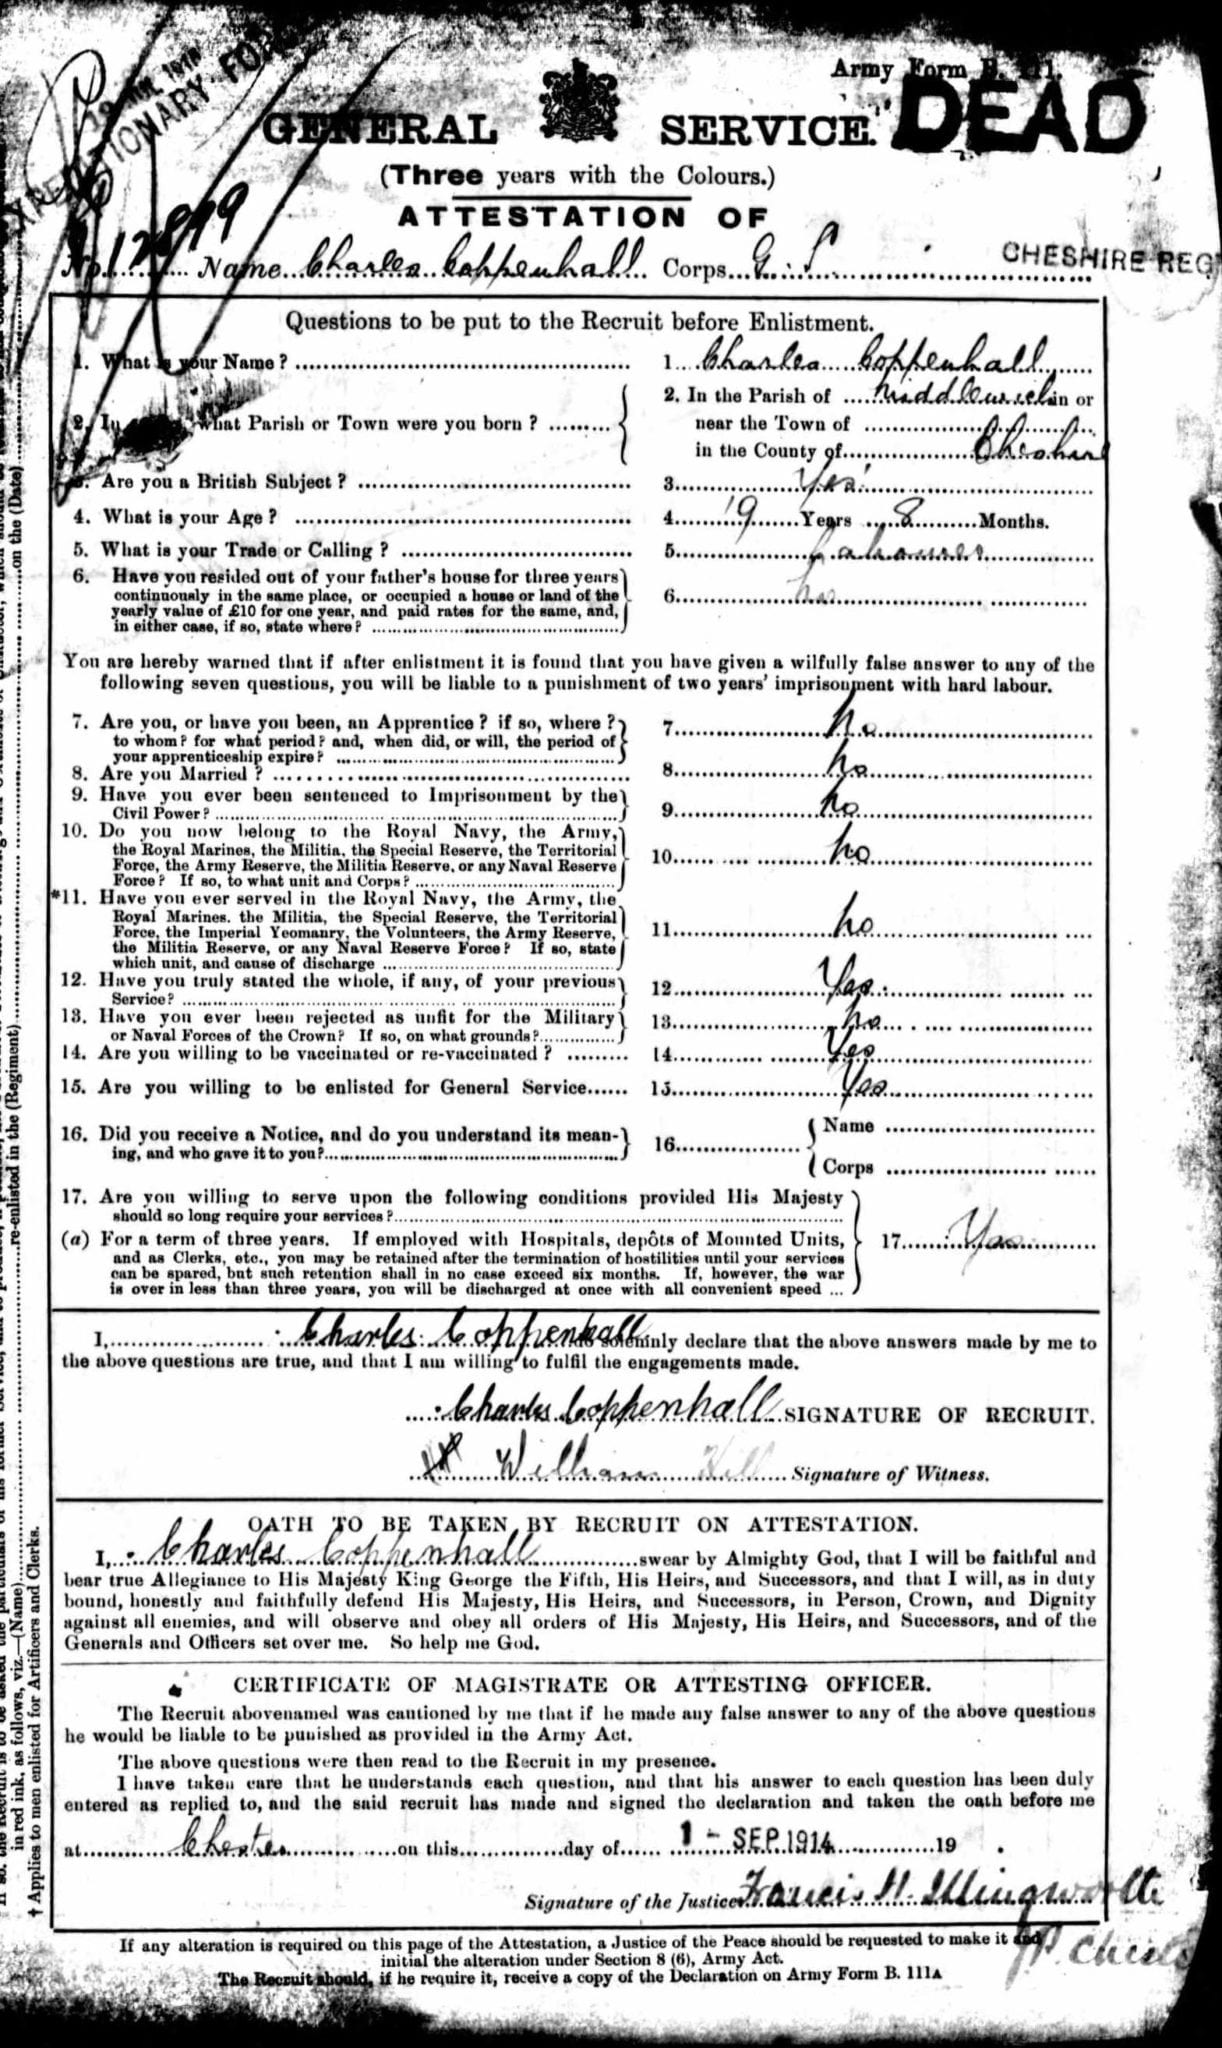 Army Form B. 111.
DEAD
GENERAL SERVICE.
(Three years with the Colours.)
ATTESTATION OF
No. 12899 Name Charles Coppenhall Corps G. S. CHESHIRE REGT
Questions to be put to the Recruit before Enlistment.
1. What is your Name? 1. Charles Coppenhall
2. In what Parish or Town were you born? 2. In the Parish of Middlewich in or
near the Town of
in the County of Cheshire
3. Are you a British Subject? 3. Yes
4. What is your Age? 4. 19 Years 8 Months.
5. What is your Trade or Calling? 5. Labourer
6. Have you resided out of your father's house for three years
continuously in the same place, or occupied a house or land of the
yearly value of £10 for one year, and paid rates for the same, and,
in either case, if so, state where? 6. no
You are hereby warned that if after enlistment it is found that you have given a wilfully false answer to any of the
following seven questions, you will be liable to a punishment of two years' imprisonment with hard labour.
7. Are you, or have you been, an Apprentice? if so, where?
to whom? for what period? and, when did, or will, the period of
your apprenticeship expire? 7. no
8. Are you Married? 8. no
9. Have you ever been sentenced to Imprisonment by the
Civil Power? 9. no
10. Do you now belong to the Royal Navy, the Army,
the Royal Marines, the Militia, the Special Reserve, the Territorial
Force, the Army Reserve, the Militia Reserve, or any Naval Reserve
Force? If so, to what unit and Corps? 10. no
*11. Have you ever served in the Royal Navy, the Army, the
Royal Marines. the Militia, the Special Reserve, the Territorial
Force, the Imperial Yeomanry, the Volunteers, the Army Reserve,
the Militia Reserve, or any Naval Reserve Force? If so, state
which unit, and cause of discharge 11. no
12. Have you truly stated the whole, if any, of your previous
Service? 12. Yes
13. Have you ever been rejected as unfit for the Military
or Naval Forces of the Crown? If so, on what grounds? 13. no
14. Are you willing to be vaccinated or re-vaccinated? 14. Yes
15. Are you willing to be enlisted for General Service 15. Yes
16. Did you receive a Notice, and do you understand its mean-
ing, and who gave it to you? 16. Name
Corps
17. Are you willing to serve upon the following conditions provided His Majesty
should so long require your services?
(a) For a term of three years. If employed with Hospitals, depôts of Mounted Units,
and as Clerks, etc., you may be retained after the termination of hostilities until your services
can be spared, but such retention shall in no case exceed six months. If, however, the war
is over in less than three years, you will be discharged at once with all convenient speed 17. Yes
I, Charles Coppenhall do solemnly declare that the above answers made by me to
the above questions are true, and that I am willing to fulfil the engagements made.
Charles Coppenhall SIGNATURE OF RECRUIT.
William Hill Signature of Witness.
OATH TO BE TAKEN BY RECRUIT ON ATTESTATION.
I, Charles Coppenhall swear by Almighty God, that I will be faithful and
bear true Allegiance to His Majesty King George the Fifth, His Heirs, and Successors, and that I will, as in duty
bound, honestly and faithfully defend His Majesty, His Heirs, and Successors, in Person, Crown, and Dignity
against all enemies, and will observe and obey all orders of His Majesty, His Heirs, and Successors, and of the
Generals and Officers set over me. So help me God.
CERTIFICATE OF MAGISTRATE OR ATTESTING OFFICER.
The Recruit abovenamed was cautioned by me that if he made any false answer to any of the above questions
he would be liable to be punished as provided in the Army Act.
The above questions were then read to the Recruit in my presence.
I have taken care that he understands each question, and that his answer to each question has been duly
entered as replied to, and the said recruit has made and signed the declaration and taken the oath before me
at Chester on this day of 1 - SEP. 1914 19 .
Signature of the Justice Francis H. Illingworth
J.P. Chester
If any alteration is required on this page of the Attestation, a Justice of the Peace should be requested to make it and
initial the alteration under Section 8 (6), Army Act.
The Recruit should, if he require it, receive a copy of the Declaration on Army Form B. 111A
in red ink, as follows, viz.—(Name) re-enlisted in the (Regiment) on the (Date)
† Applies to men enlisted for Artificers and Clerks.